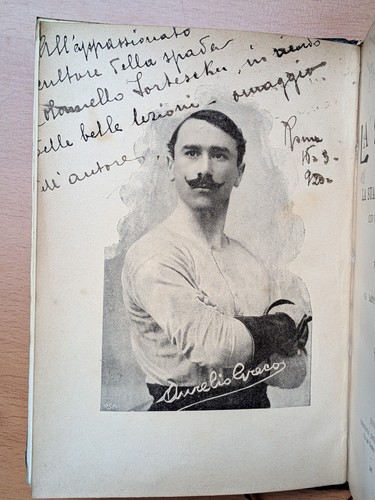 All'appassionato
cultore della spada
Colonnello Forteseku, in ricordo
delle belle lezioni - omaggio
dell'autore.
Roma
15-3-
920-
Aurelio Greco
LA
LA STA